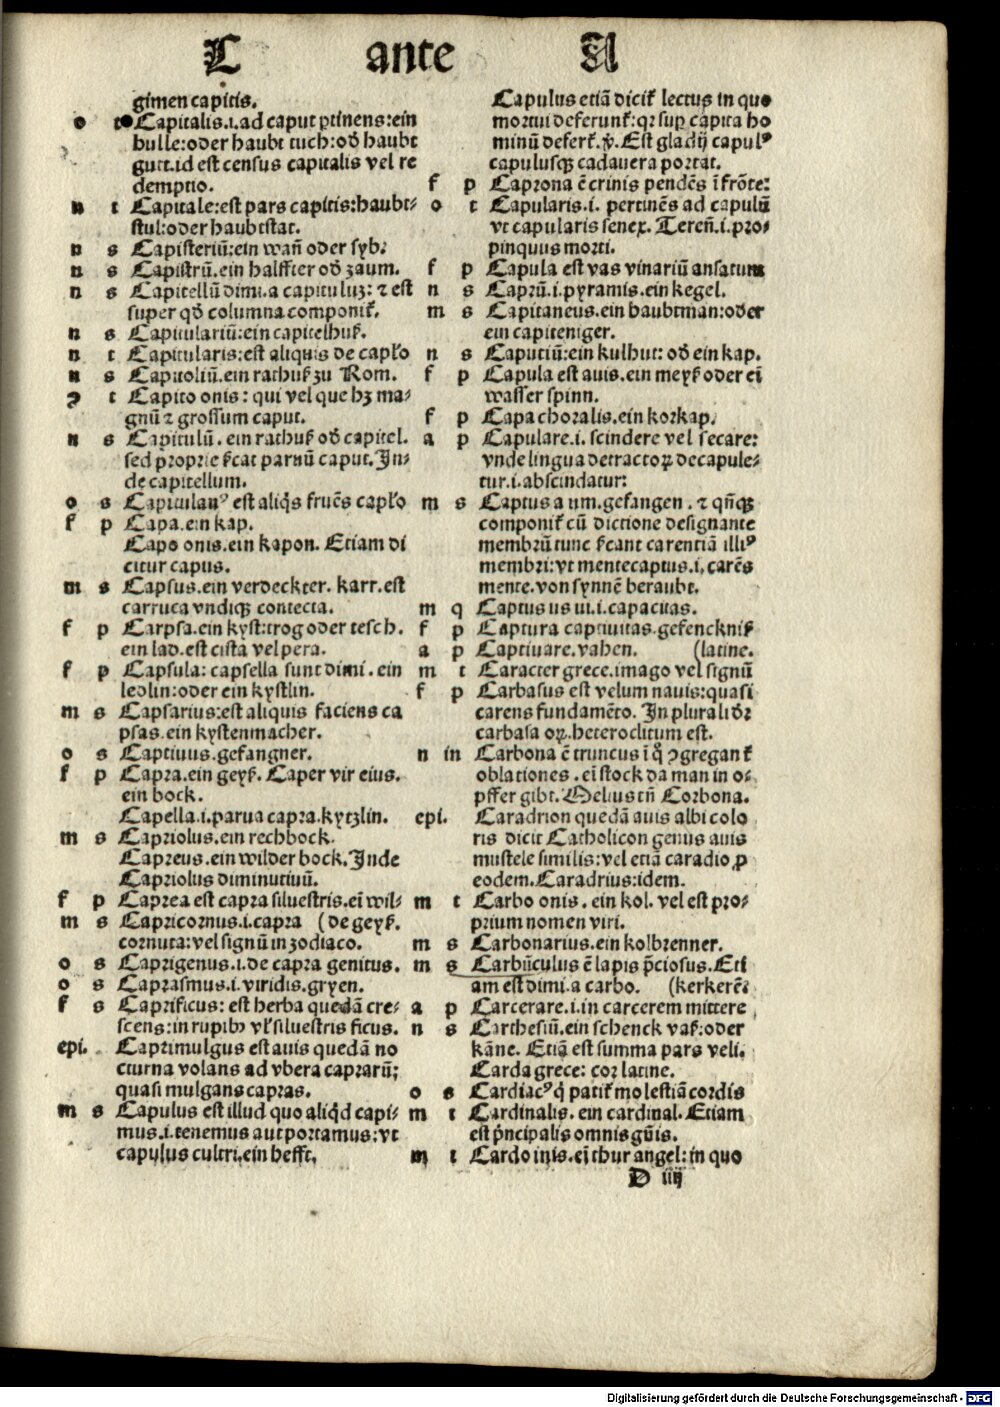 C ante A
gimen capitis.
o t Capitalis.i.ad caput ꝑtinens:ein
hulle:oder haubt tuch:od̕ haubt
gutt.id est census capitalis vel re
demptio.
n t Capitale:est pars capitis:haubt⸗
stul:oder haubtstat.
n s Capisteriū:ein wañ oder syb.
n s Capistrū.ein halffter od̕ zaum.
n s Capitellū dimi.a capituluꝫ: ⁊ est
super qd̕ columna componit᷑.
n s Capitulariū:ein capitelhuß.
n t Capitularis:est aliquis de capl'o
n s Capitoliū.ein rathuß zu Rom.
ꝰ t Capito onis: qui vel que hꝫ ma⸗
gnū ⁊ grossum caput.
n s Capitulū. ein rathuß od̕ capitel.
sed proprie ſ̕cat paruū caput.In⸗
de capitellum.
o s Capitulanꝰ est aliq̕s fruēs capl'o
f p Capa.ein kap.
Capo onis.ein kapon. Etiam di
citur capus.
m s Capsus.ein verdeckter. karr.est
carruca vndiqꝫ contecta.
f p Carpsa.ein kyst:trog oder tesch.
ein lad.est cista vel pera.
f p Capsula: capsella sunt dimi.ein
ledlin:oder ein kystlin.
m s Capsarius:est aliquis faciens ca
psas.ein kystenmacher.
o s Captiuus.gefangner.
f p Capra.ein geyß. Caper vir eius.
ein bock.
Capella.i.parua capra.kytzlin.
m s Capriolus.ein rechbock.
Capreus.ein wilder bock.Inde
Capriolus diminutiuū.
f p Caprea est capra siluestris.eī wil⸗
m s Capricornus.i.capra (de geyß.
cornuta:vel signū in zodiaco.
o s Caprigenus.i.de capra genitus.
o s Caprasmus.i.viridis.gryen.
f s Caprificus: est herba quedā cre⸗
scens:in rupibꝫ vl' siluestris ficus.
epi. Caprimulgus est auis quedā no
cturna volans ad vbera caprarū;
quasi mulgans capras.
m s Capulus est illud quo aliq̕d capi⸗
mus.i.tenemus aut portamus:vt
capulus cultri.ein hefft.
Capulus etiā dicit᷑ lectus in quo
mortui deferunt᷑:qꝛ suꝑ capita ho
minū defert᷑.v̕. Est gladij capulꝰ
capulusqꝫ cadauera portat.
f p Caprona ē crinis pendēs ī frōte:
o t Capularis.i. pertinēs ad capulū
vt capularis senex. Tereñ.i.pro⸗
pinquus morti.
f p Capula est vas vinariū ansatum
n s Caprū.i.pyramis.ein kegel.
m s Capitaneus.ein haubtman:oder
ein capiteniger.
n s Caputiū:ein kulhut: od̕ ein kap.
f p Capula est auis.ein meyß oder eī
wasser spinn.
f p Capa choralis.ein korkap.
a p Capulare.i. scindere vel secare:
vnde lingua detractoꝝ decapule⸗
tur.i.abscindatur:
m s Captus a um.gefangen. ⁊ qñqꝫ
componit᷑ cū dictione designante
membrū tunc ſ̕cant carentiā illiꝰ
membri:vt mentecaptus.i.carēs
mente.von synnē beraubt.
m q Captus us ui.i.capacitas.
f p Captura captiuitas.gefenckniß
a p Captiuare.vahen. (latine.
m t Caracter grece.imago vel signū
f p Carbasus est velum nauis:quasi
carens fundamēto. In pluralib̕:
carbasa oꝝ.heteroclitum est.
n in Carbona ē truncus ī q̊ ꝯgregant᷑
oblationes. eī stock da man in o⸗
pffer gibt. Gelius tñ Corbona.
epi. Caradrion quedā auis albi colo
ris dicit Catholicon genus auis
mustele similis:vel etiā caradio ꝓ
eodem. Caradrius:idem.
m t Carbo onis. ein kol. vel est pro⸗
prium nomen viri.
m s Carbonarius.ein kolbrenner.
m s Carbūculus ē lapis p̄ciosus.Eti
am est dimi.a carbo. (kerkerē:
a p Carcerare.i.in carcerem mittere
n s Carthesiū.ein schenck vaß:oder
kāne. Etiā est summa pars veli.
Carda grece: cor latine.
o s Cardiacꝰ q̇ patit᷑ molestiā cordis
m t Cardinalis. ein cardinal. Etiam
est p̕ncipalis omnis gñis.
m t Cardo inis.eī thur angel:in quo
D iiij
Digitalisierung gefördert durch die Deutsche Forschungsgemeinschaft - DFG